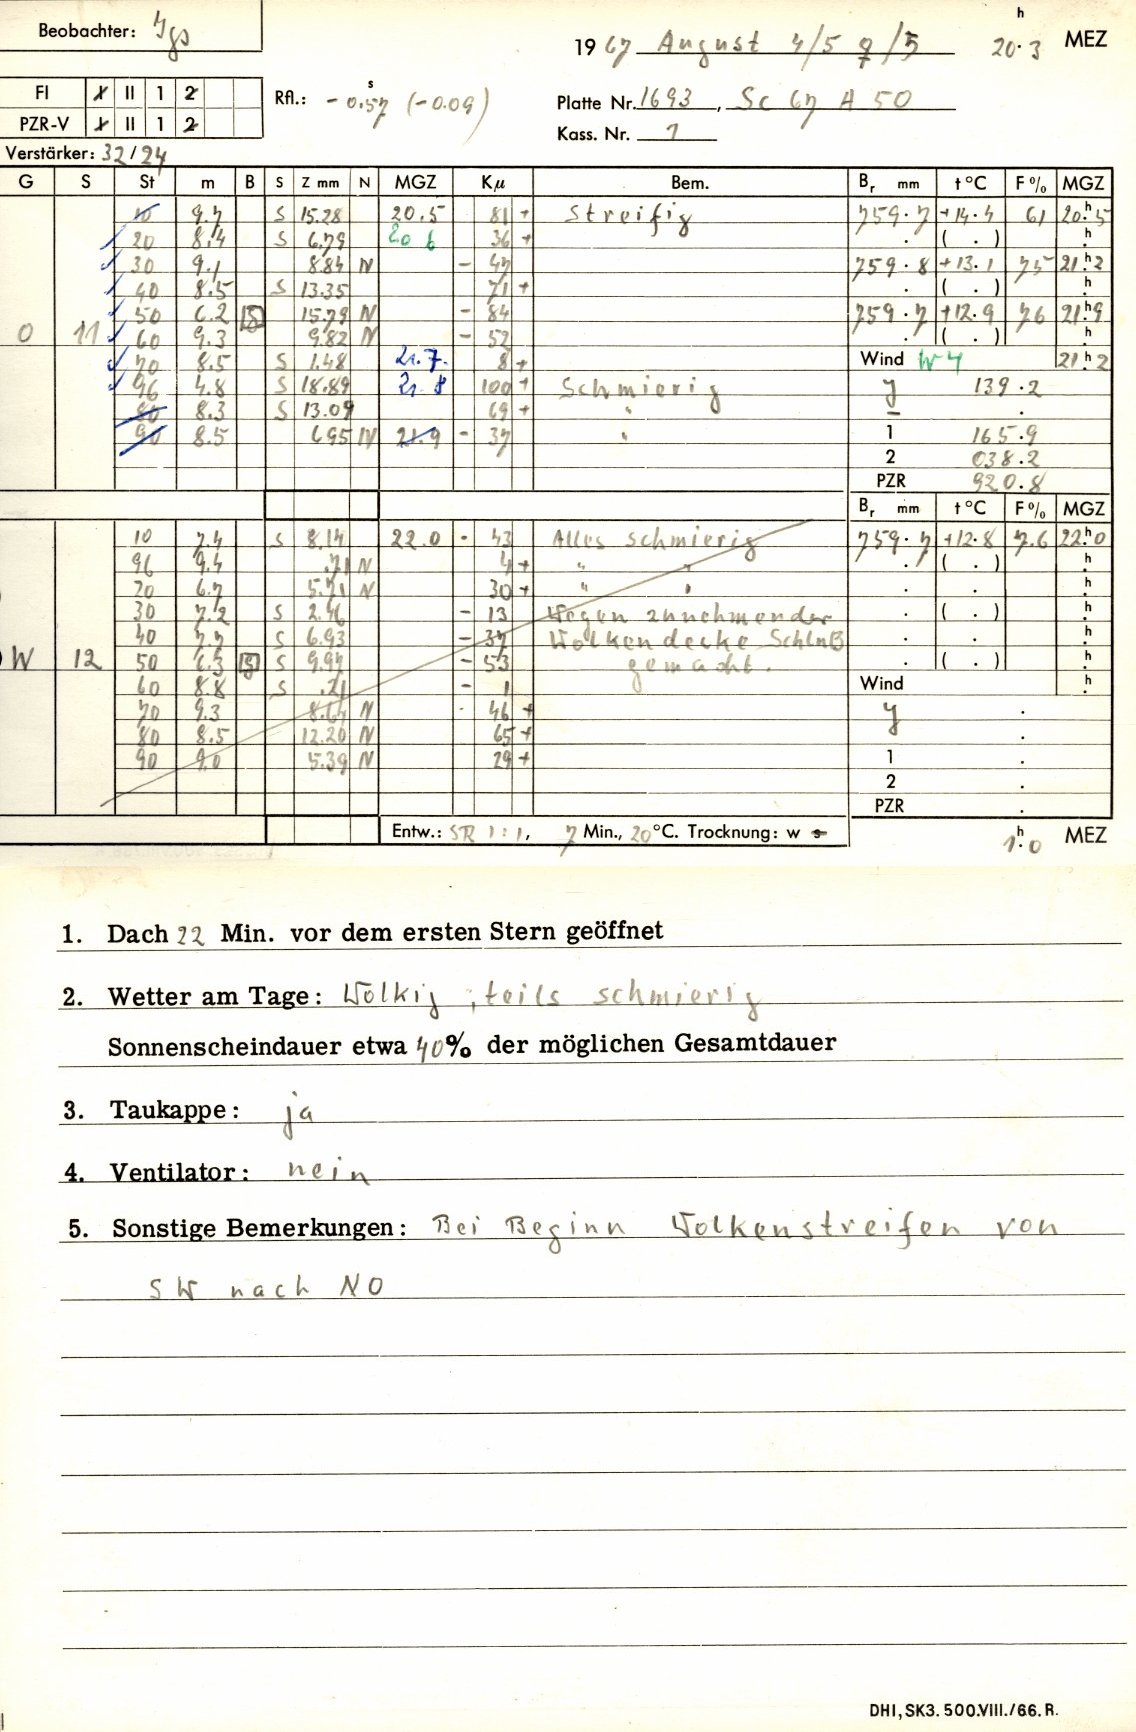 Beobachter: Jgs
1967 August 4/5 20.3 h MEZ
FI I II 1 2
Rfl.: -0.57 s (-0.09)
Platte Nr. 1693, Sc 67 A 50
PZR-V I II 1 2
Kass. Nr. 1
Verstärker: 32/24
G S St m B S Z mm N MGZ Kμ Bem. Br mm t °C F % MGZ
10 9.7 S 15.28 20.5 81 + Streifig 759.7 +14.4 61 20.5 h
20 8.4 S 6.79 20 6 36 + . ( . ) h
30 9.1 8.84 N - 47 759.8 +13.1 75 21.2 h
40 8.5 S 13.35 71 + . ( . ) h
50 6.2 15.79 N - 84 759.7 +12.9 76 21.9 h
O 11 60 9.3 9.82 N - 52 . ( . ) h
70 8.5 S 1.48 21.7 8 + Wind W 4 21.2 h
96 4.8 S 18.89 21.8 100 + Schmierig y 139.2
80 8.3 S 13.09 69 + " .
90 8.5 6.95 N 21.9 - 37 " 1 165.9
2 038.2
PZR 920.8
Br mm t °C F % MGZ
10 7.4 S 8.14 22.0 - 43 Alles schmierig 759.7 +12.8 7.6 22.0 h
96 9.4 .71 N 4 + " " . ( . ) h
20 6.7 5.71 N 30 + " " . . h
30 7.2 S 2.46 - 13 Wegen zunehmender . ( . ) h
40 7.7 S 6.93 - 37 Wolkendecke Schluß . . h
W 12 50 6.3 S 9.97 - 53 gemacht. . ( . ) h
60 8.8 S .21 - 1 Wind h
70 9.3 8.64 N 46 + y .
80 8.5 12.20 N 65 + .
90 9.0 5.39 N 29 + 1 .
2 .
PZR .
Entw.: SR 1:1, 7 Min., 20 °C. Trocknung: w s
1.0 h MEZ
1. Dach 22 Min. vor dem ersten Stern geöffnet
2. Wetter am Tage: Wolkig, teils schmierig
Sonnenscheindauer etwa 40% der möglichen Gesamtdauer
3. Taukappe: ja
4. Ventilator: nein
5. Sonstige Bemerkungen: Bei Beginn Wolkenstreifen von
SW nach NO
DHI, SK3. 500.VIII./66. R.